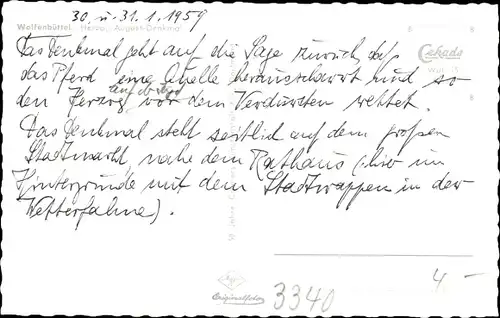 30. u. 31.1.1959
Wolfenbüttel Herzog-August-Denkmal
Cekade
Das Denkmal geht auf die Sage zurück, daß
das Pferd eine Quelle herausscharrt und so
den Herzog auf d. Jagd vor dem Verdursten rettet.
Das Denkmal steht seitlich auf dem großen
Stadtmarkt, nahe dem Rathaus (hier im
Hintergrunde mit dem Stadtwappen in der
Wetterfahne).
Originalfoto
3340
4 -